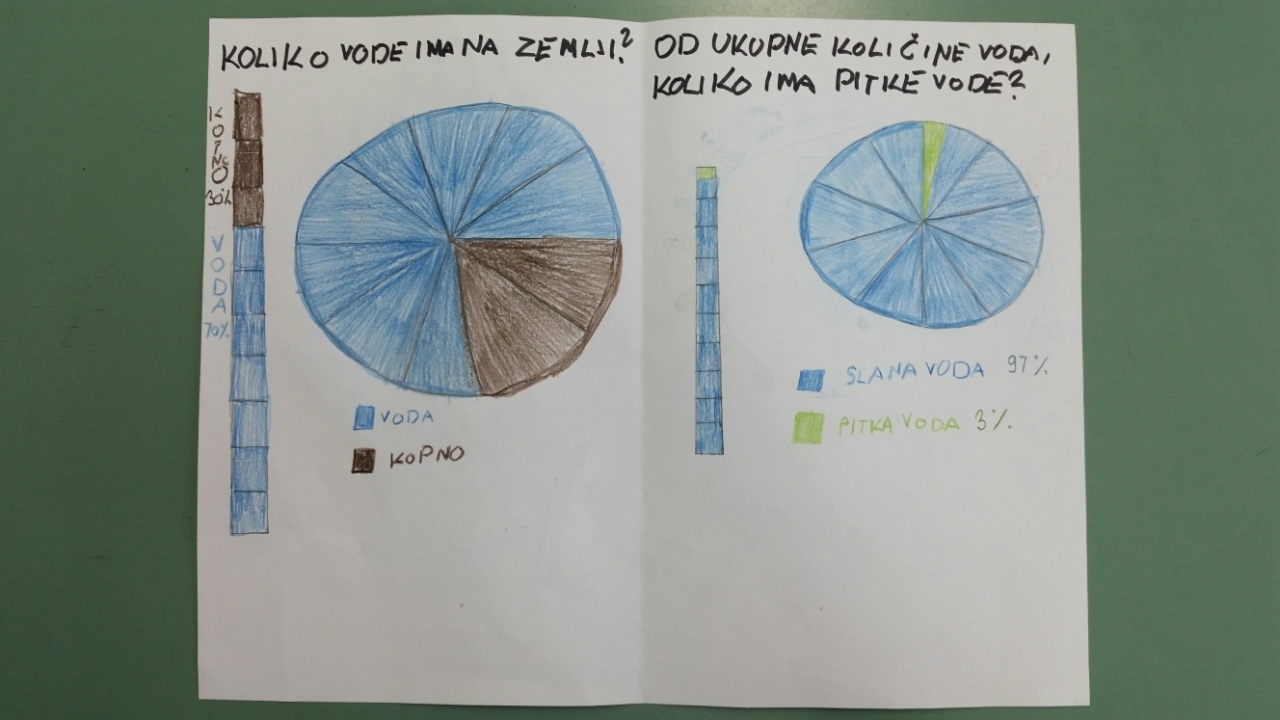 KOLIKO VODE IMA NA ZEMLJI?
KOPNO
30%
VODA
70%
VODA
KOPNO
OD UKUPNE KOLIČINE VODA,
KOLIKO IMA PITKE VODE?
SLANA VODA 97%
PITKA VODA 3%.